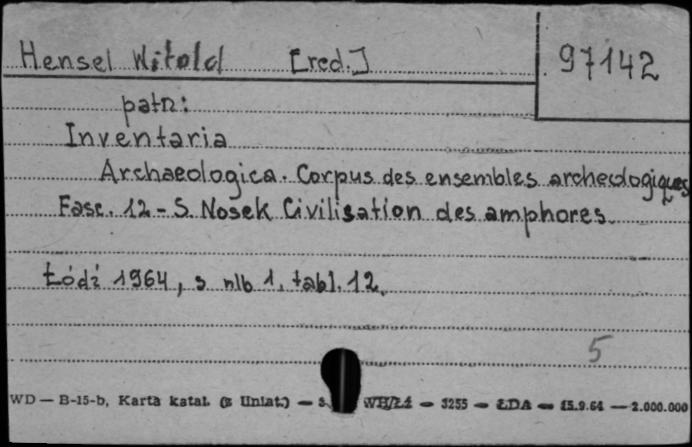 Hensel Witold [red.]
97142
patrz:
Inventaria
Archaeologica. Corpus des ensembles archeologiques
Fasc. 12 - S. Nosek Civilisation des amphores.
Łódź 1964, s nlb 1, tabl. 12.
5
WD — B-15-b, Karta katal. (z Uniat.) — WH/Łź — 3255 — ŁDA — 15.9.64 — 2.000.000